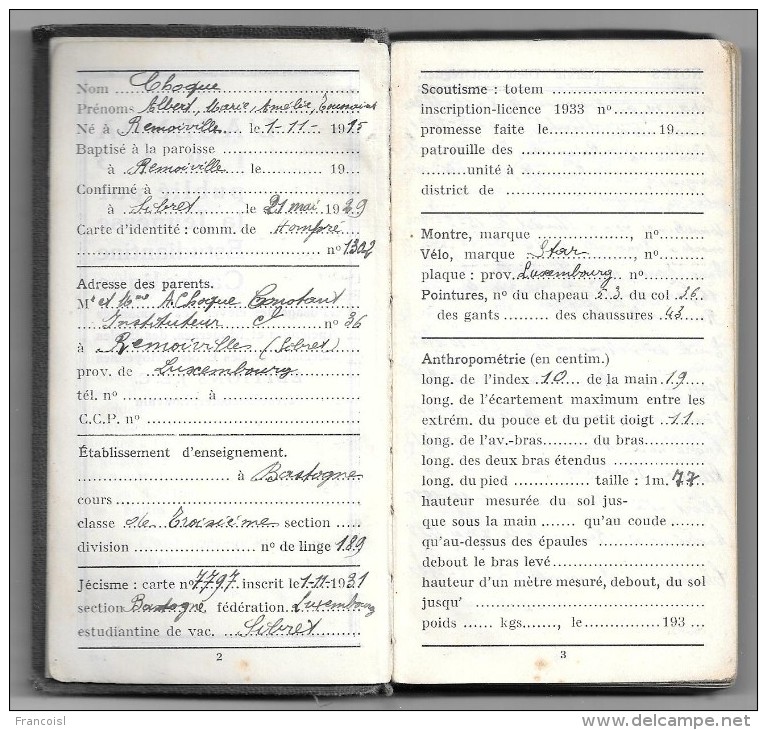 Nom Choque
Prénoms Albert, Marie, Amélie,
Né à Remoiville le 1-11- 1915
Baptisé à la paroisse
à Remoiville le ............ 19...
Confirmé à
à Sibret le 21 mai 1929
Carte d'identité : comm. de
nº 1302
Adresse des parents.
Mr et Mme A. Choque Constant
Instituteur nº 36
à Remoiville (Sibret)
prov. de Luxembourg
tél. nº ............ à ............
C.C.P. nº ............
Établissement d'enseignement.
............ à Bastogne
cours ............
classe de Troisième section .....
division ............ nº de linge 189
Jécisme : carte nº 7797 inscrit le 1-11-1931
section Bastogne fédération Luxembourg
estudiantine de vac. Sibret
2
Scoutisme : totem ............
inscription-licence 1933 nº ............
promesse faite le ............ 19......
patrouille des ............
......... unité à ............
district de ............
Montre, marque ............, nº .........
Vélo, marque Star, nº .........
plaque : prov. Luxembourg nº .........
Pointures, nº du chapeau 53. du col 36.
des gants ......... des chaussures 43
Anthropométrie (en centim.)
long. de l'index 10 de la main 19
long. de l'écartement maximum entre les
extrém. du pouce et du petit doigt 11
long. de l'av.-bras ......... du bras .........
long. des deux bras étendus ............
long. du pied ............ taille : 1m. 77
hauteur mesurée du sol jus-
que sous la main ....... qu'au coude .......
qu'au-dessus des épaules ............
debout le bras levé ............
hauteur d'un mètre mesuré, debout, du sol
jusqu' ............
poids ...... kgs......., le ............ 193 ...
3
Francoisl
www.delcampe.net